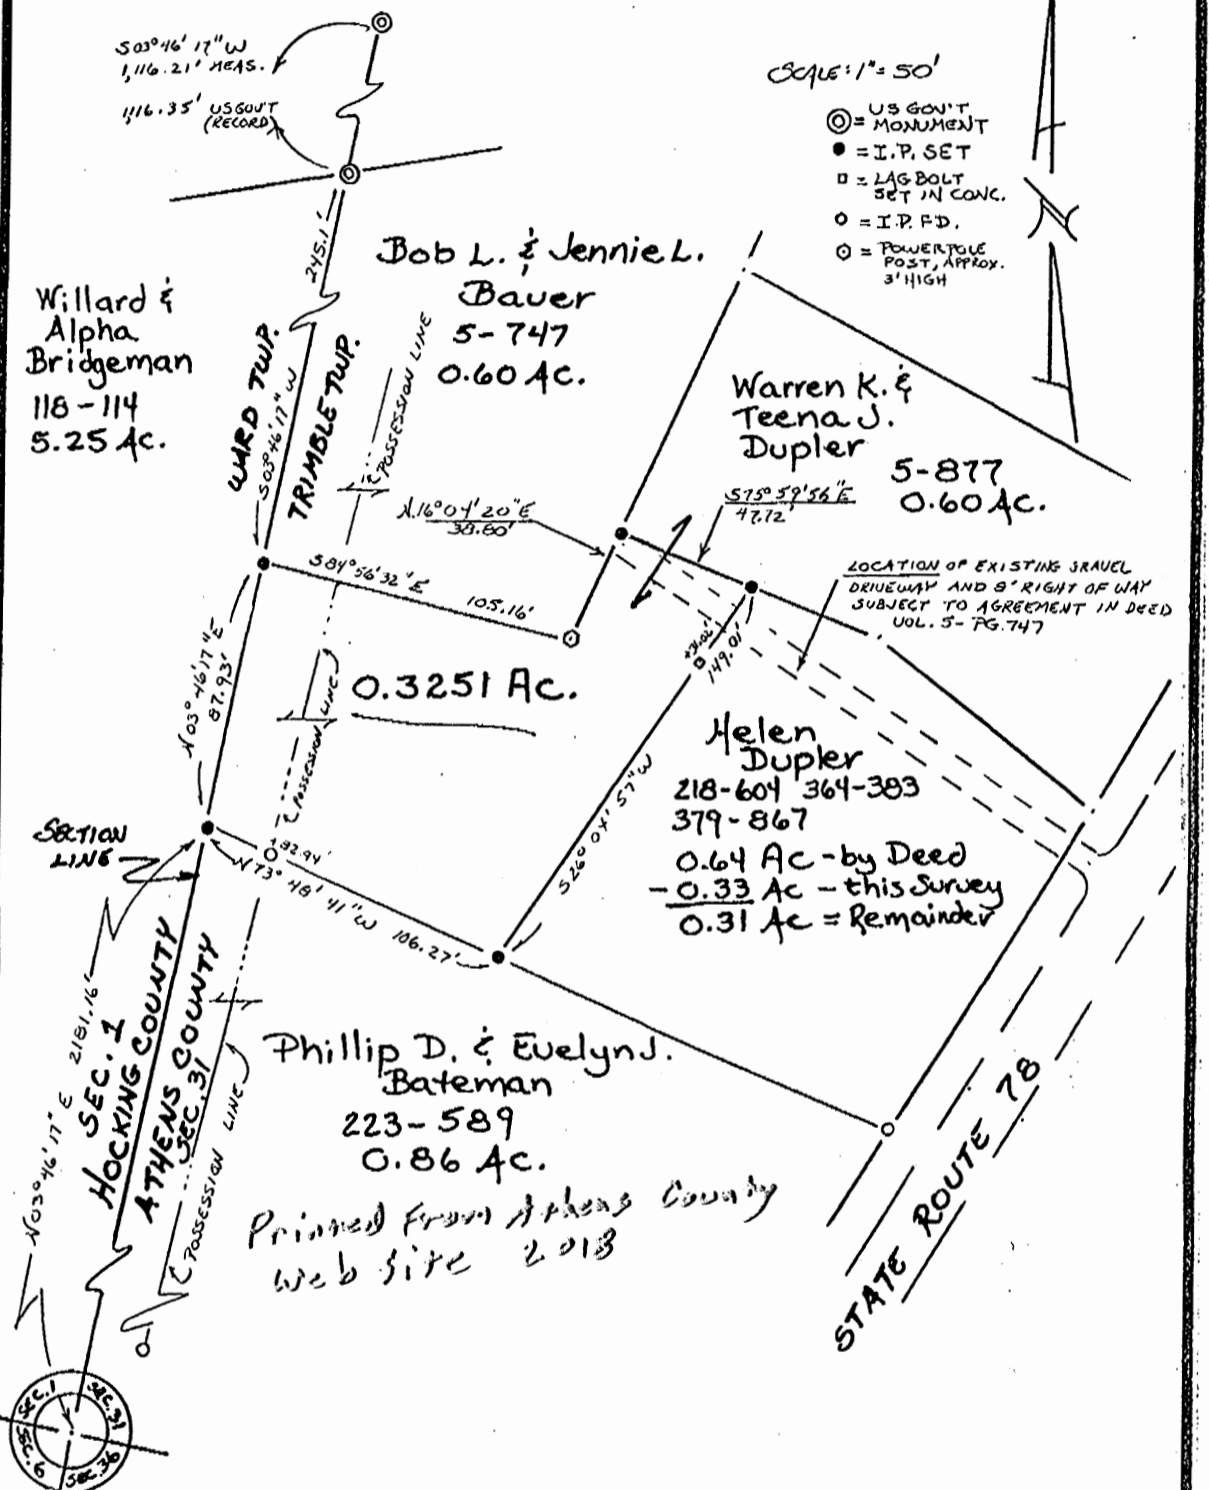 S03°46'17"W
1,116.21' MEAS.
1,116.35' US GOV'T
(RECORD)
SCALE: 1"= 50'
US GOV'T
= MONUMENT
= I.P. SET
= LAG BOLT
SET IN CONC.
= I.P. FD.
= POWERPOLE
POST, APPROX.
3' HIGH
N
245.1'
Willard &
Alpha
Bridgeman
118-114
5.25 Ac.
Bob L. & Jennie L.
Bauer
5-747
0.60 AC.
WARD TWP.
S03°46'17"W
TRIMBLE TWP.
POSSESSION LINE
Warren K. &
Teena J.
Dupler
5-877
0.60 AC.
N.16°04'20"E
38.80'
S75°59'56"E
47.72'
LOCATION OF EXISTING GRAVEL
DRIVEWAY AND 8' RIGHT OF WAY
SUBJECT TO AGREEMENT IN DEED
VOL. 5- PG. 747
S84°56'32"E
105.16'
N03°46'17"E
87.93'
0.3251 Ac.
POSSESSION LINE
149.01'
S26° 57"W
Helen
Dupler
218-604 364-383
379-867
0.64 AC - by Deed
- 0.33 Ac - this Survey
0.31 Ac = Remainder
SECTION
LINE
32.94'
N73°48'41"W
106.27'
N03°46'17"E 2181.16'
SEC. 1
HOCKING COUNTY
ATHENS COUNTY
SEC. 31
POSSESSION LINE
Phillip D. & Evelyn J.
Bateman
223-589
0.86 AC.
Printed From Athens County
Web Site 2018
STATE ROUTE 78
SEC. 1
SEC. 31
SEC. 6
SEC. 36